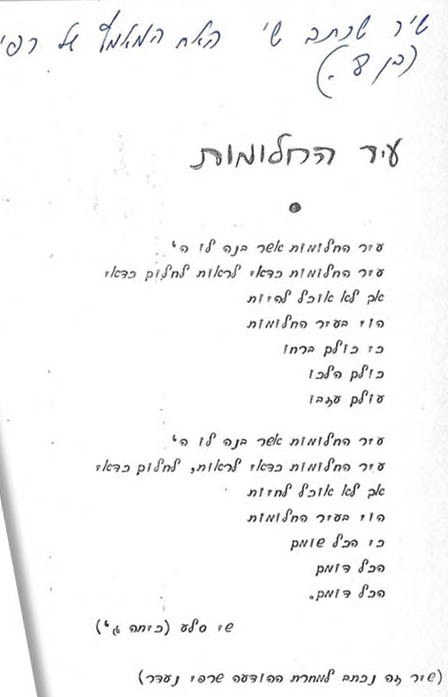 שיר שכתב שי האח המאמץ של רפי
(בן 8.)
עיר החלומות
עיר החלומות אשר בנה לו ה'
עיר החלומות כדאי לראות לחלום כדאי
אך לא אוכל להיות
הוי בעיר החלומות
כי כולם ברחו
כולם הלכו
עולם עזבו
עיר החלומות אשר בנה לו ה'
עיר החלומות כדאי לראות, לחלום כדאי
אך לא אוכל לחיות
הוי בעיר החלומות
כי הכל שומם
הכל דומם
הכל דומם.
שי סלע (כיתה ג')
(שיר זה נכתב למחרת ההודעה שרפי נעדר)